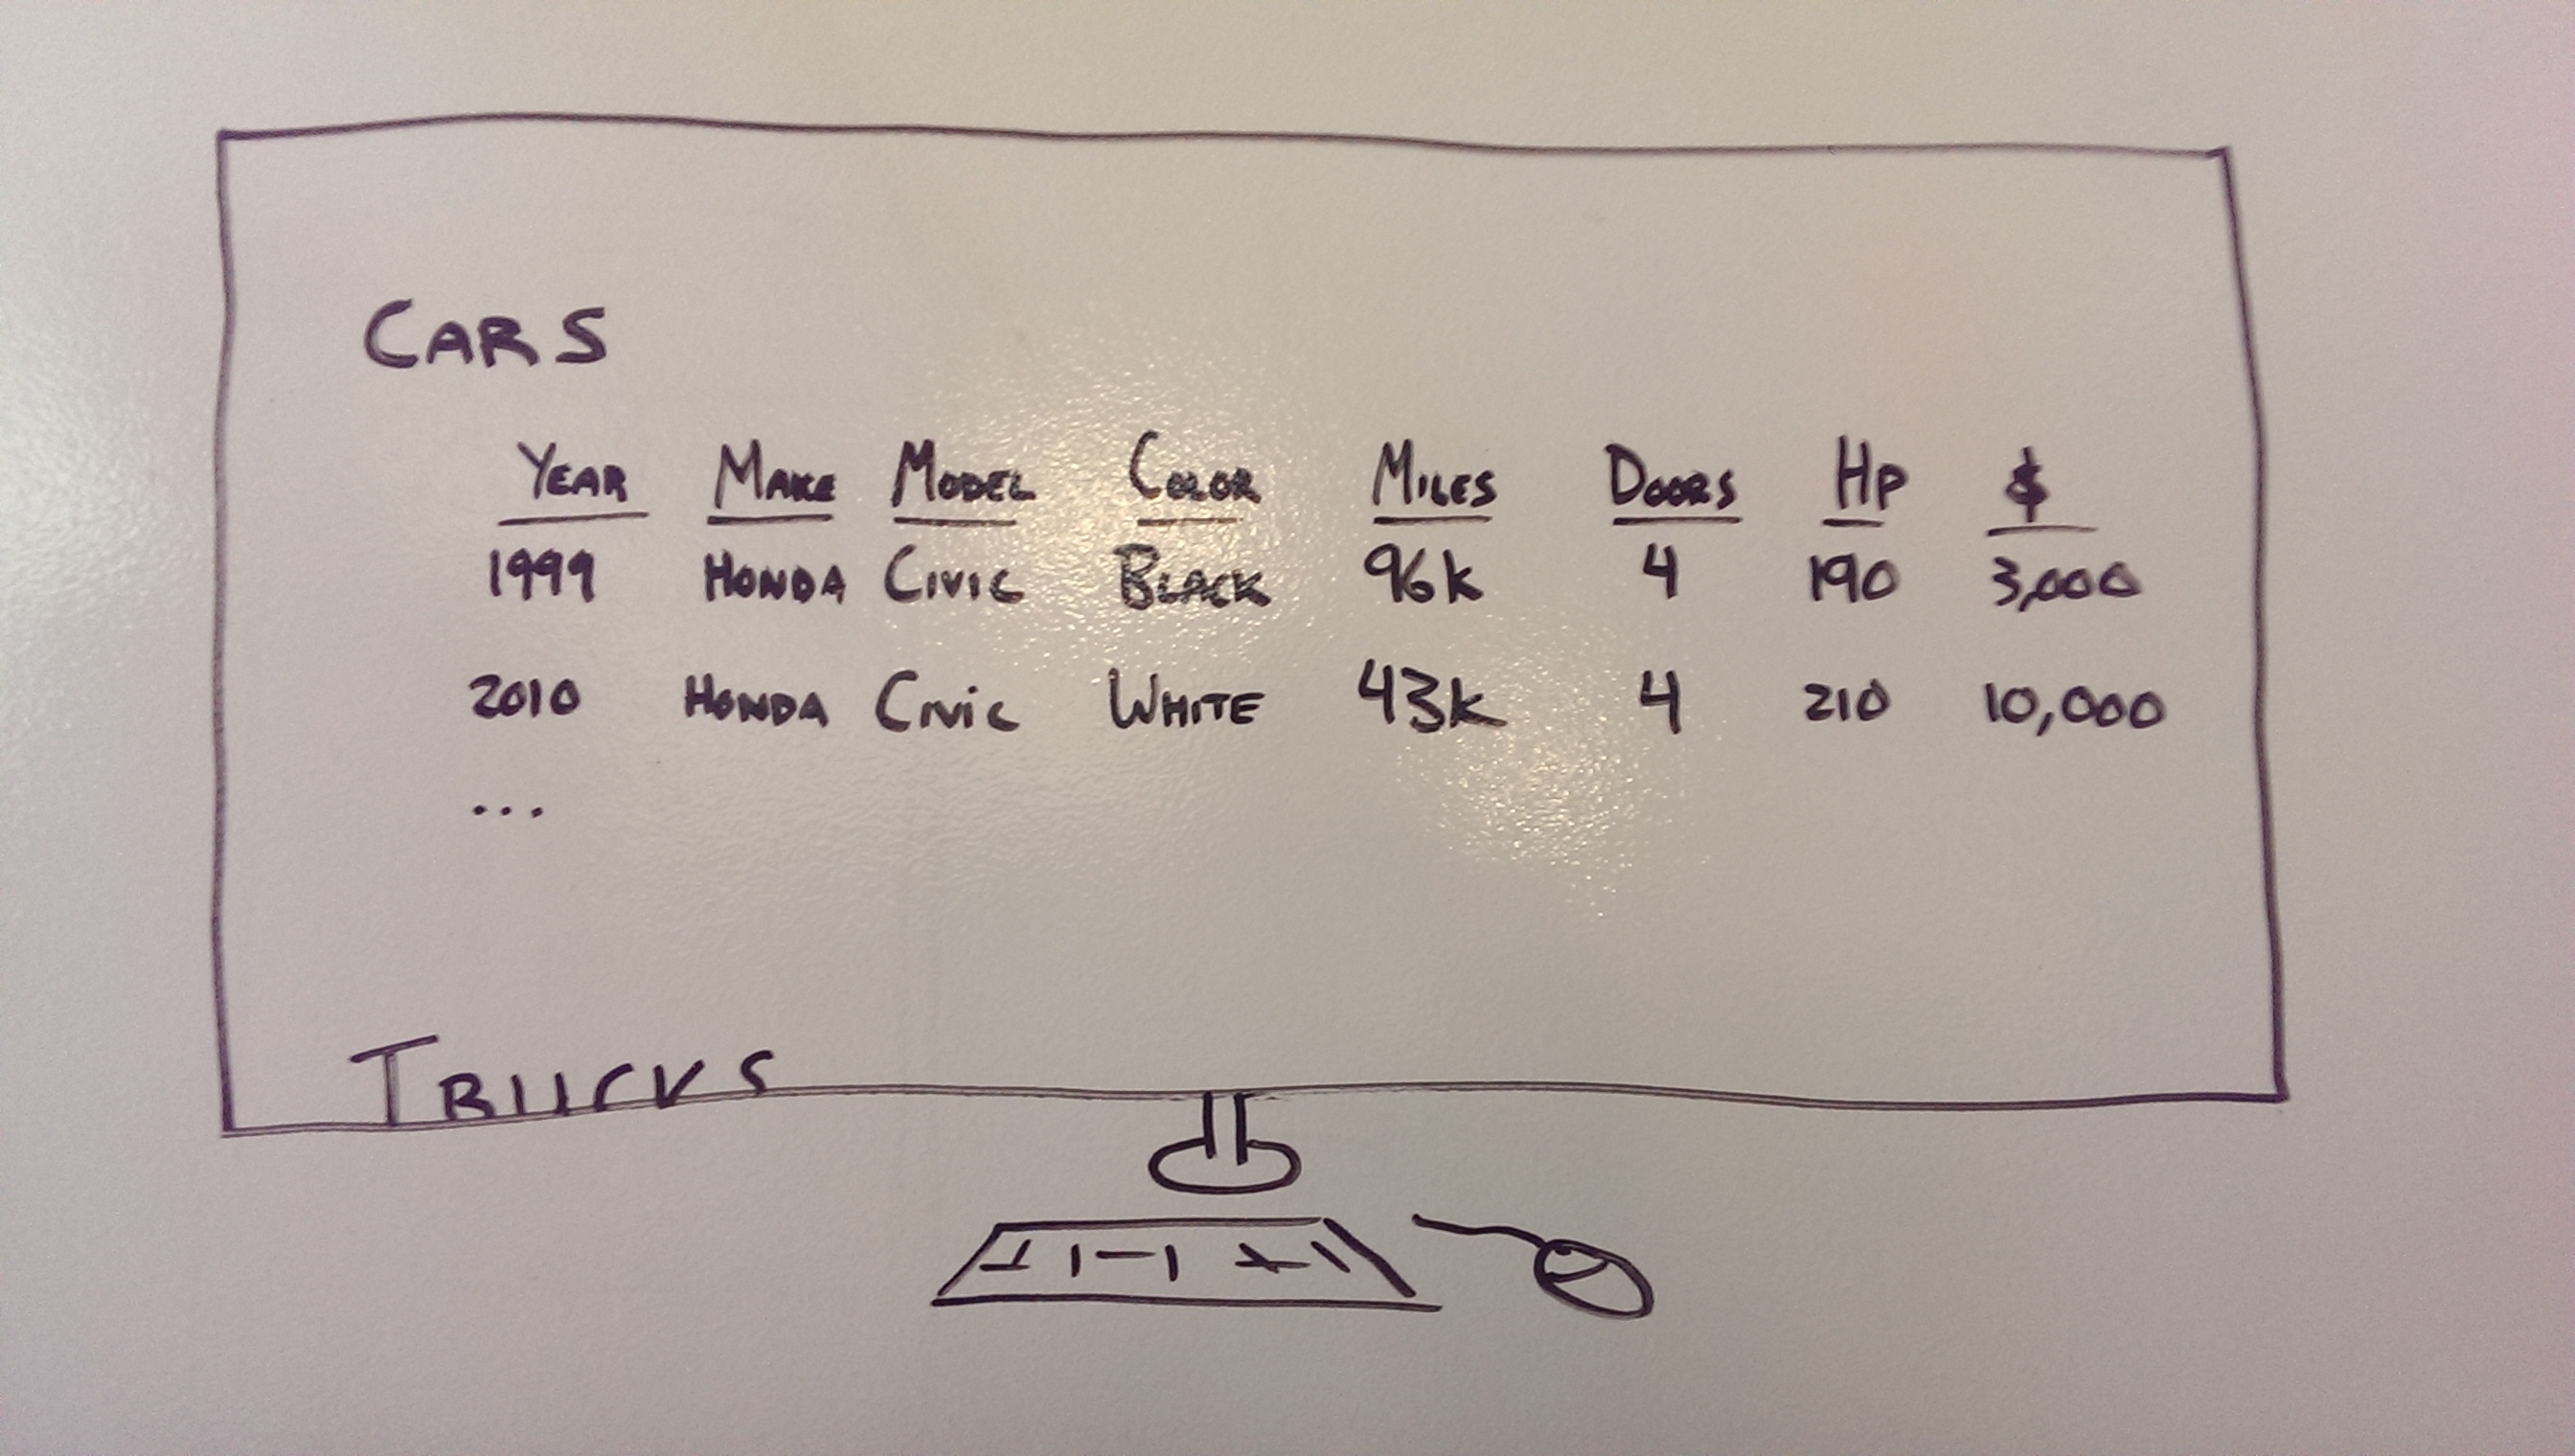 CARS
YEAR MAKE MODEL COLOR MILES DOORS HP $
1999 HONDA CIVIC BLACK 96K 4 190 3,000
2010 HONDA CIVIC WHITE 43K 4 210 10,000
...
TRUCKS